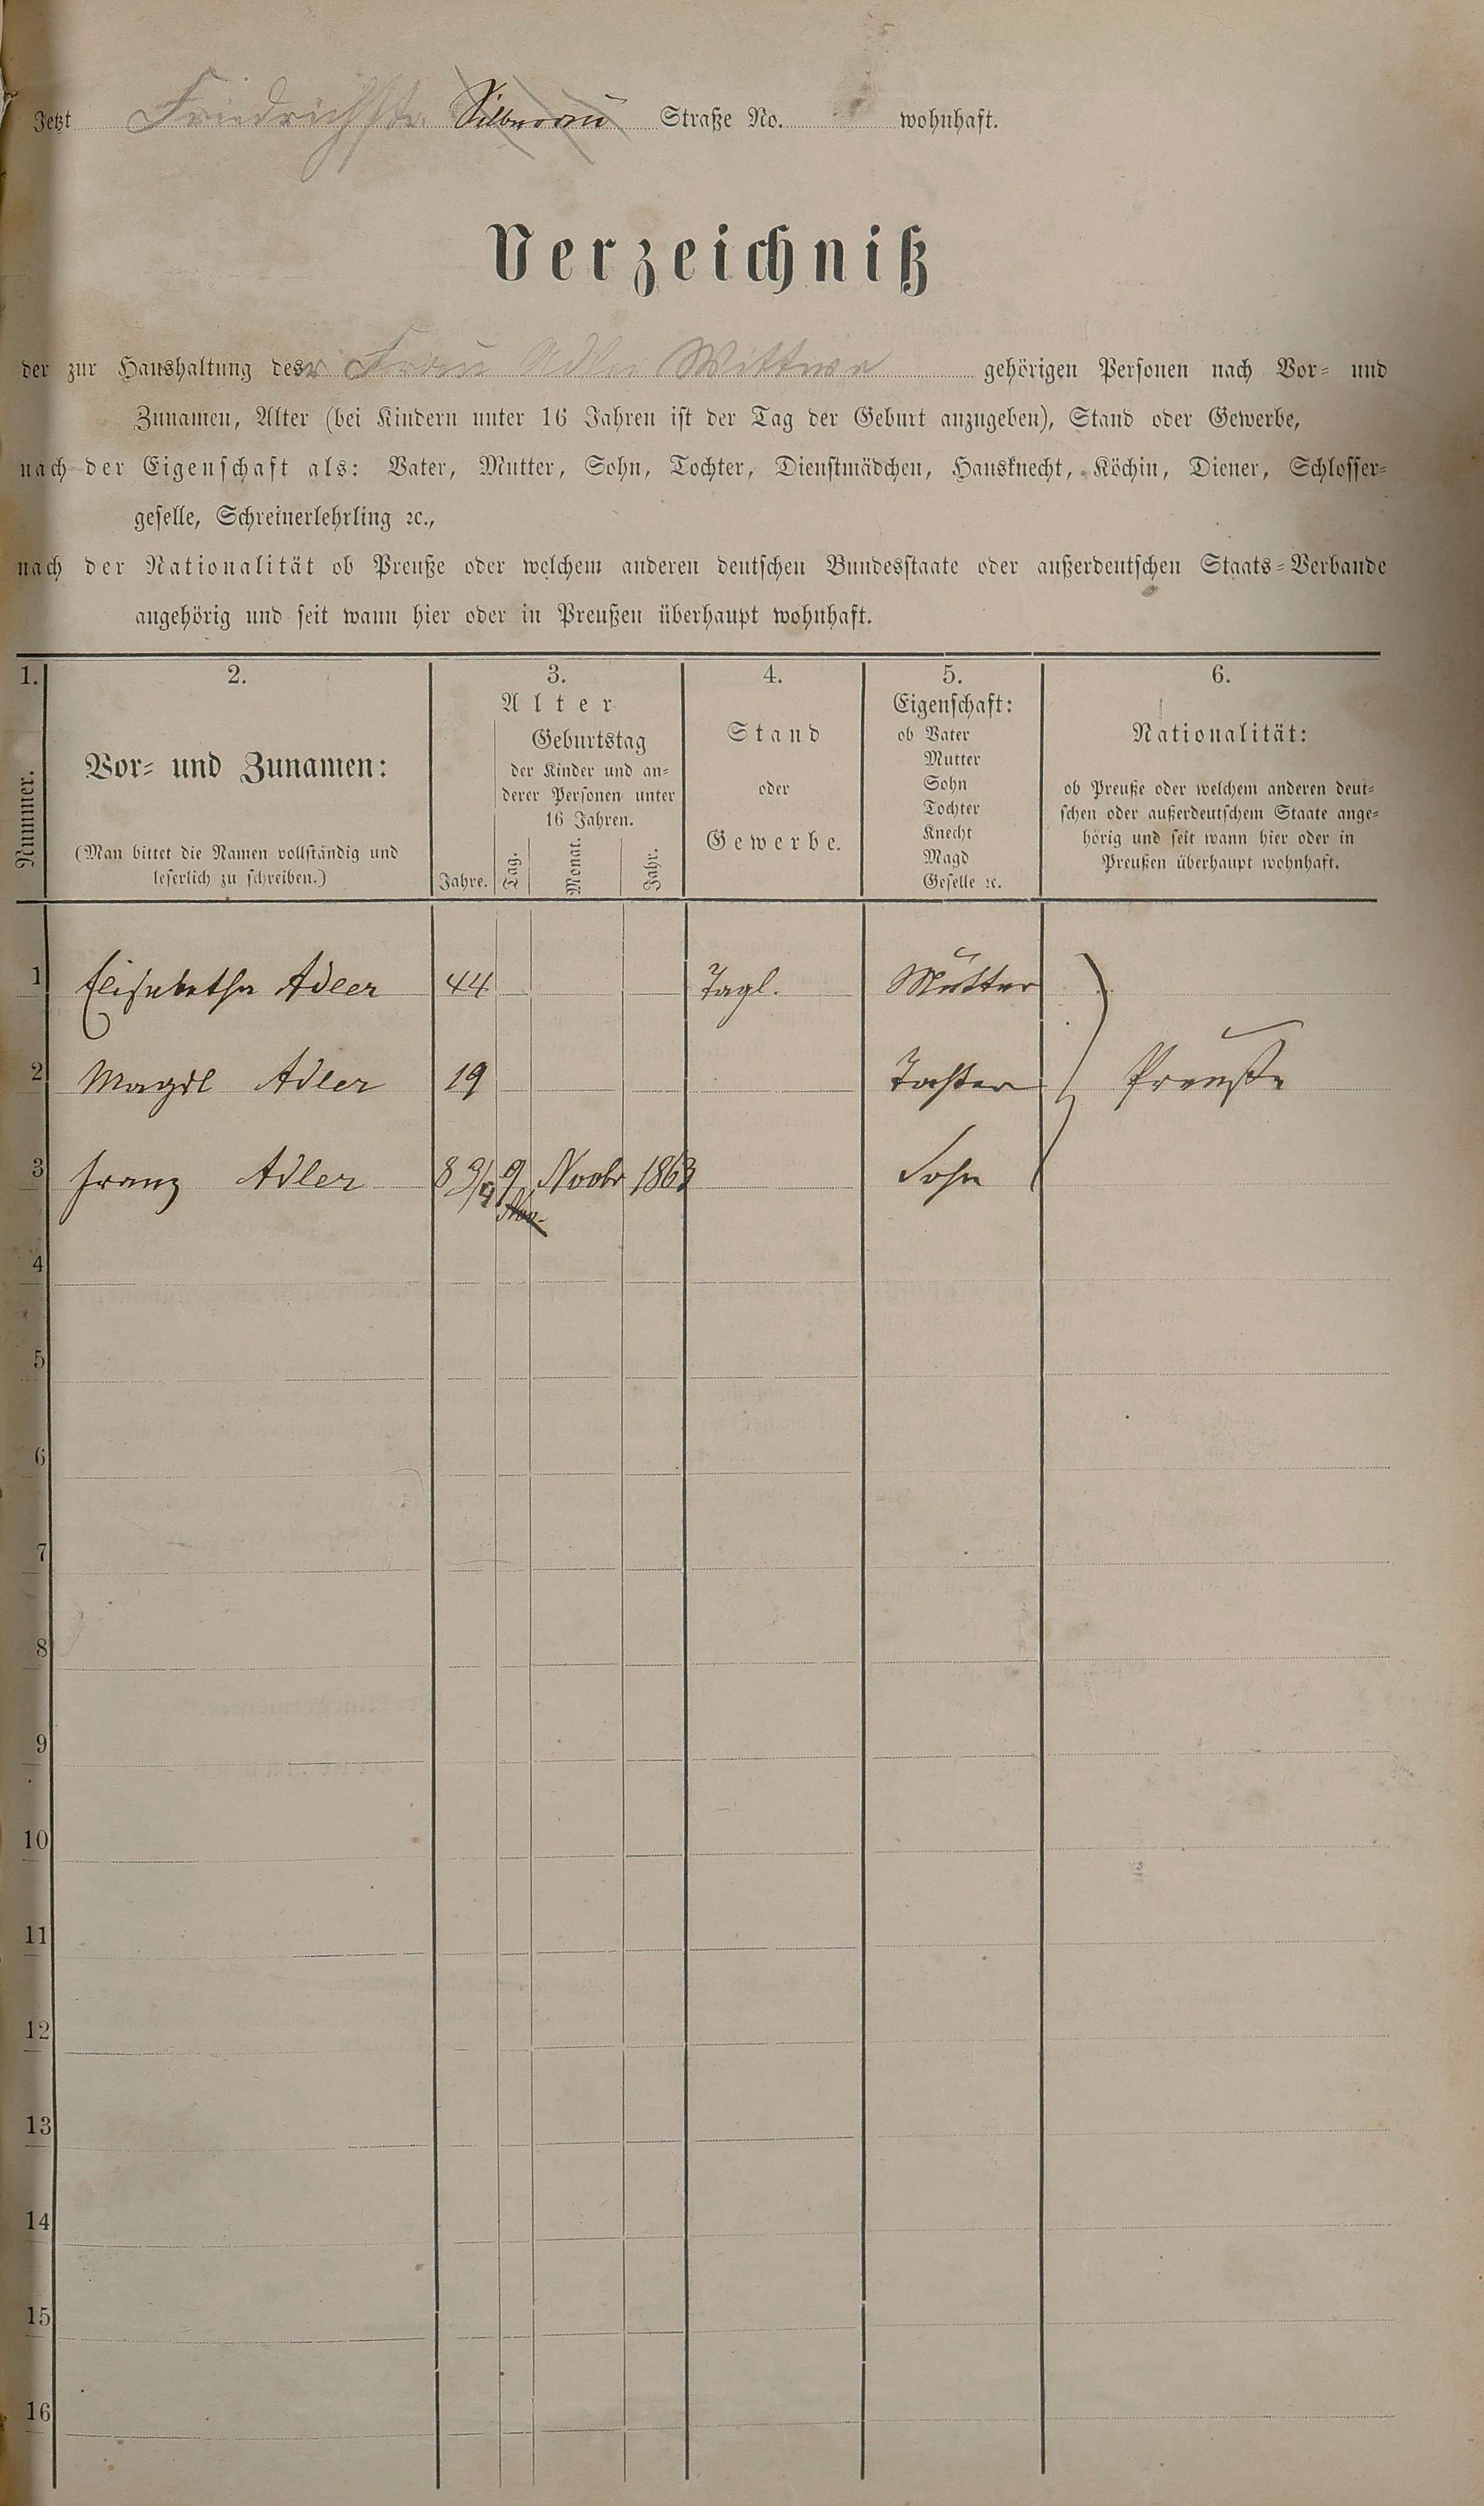 Jetzt Friedrichstr. Straße No. wohnhaft.
Verzeichniß
der zur Haushaltung des r Frau Adler Wittwe gehörigen Personen nach Vor- und
Zunamen, Alter (bei Kindern unter 16 Jahren ist der Tag der Geburt anzugeben), Stand oder Gewerbe,
nach der Eigenschaft als: Vater, Mutter, Sohn, Tochter, Dienstmädchen, Hausknecht, Köchin, Diener, Schlosser-
geselle, Schreinerlehrling ꝛc.,
nach der Nationalität ob Preuße oder welchem anderen deutschen Bundesstaate oder außerdeutschen Staats-Verbande
angehörig und seit wann hier oder in Preußen überhaupt wohnhaft.
1.
Nummer.
2.
Vor- und Zunamen:
(Man bittet die Namen vollständig und
leserlich zu schreiben.)
3.
Alter
Jahre.
Geburtstag
der Kinder und an-
derer Personen unter
16 Jahren.
Tag. Monat. Jahr.
4.
Stand
oder
Gewerbe.
5.
Eigenschaft:
ob Vater
Mutter
Sohn
Tochter
Knecht
Magd
Geselle ꝛc.
6.
Nationalität:
ob Preuße oder welchem anderen deut-
schen oder außerdeutschem Staate ange-
hörig und seit wann hier oder in
Preußen überhaupt wohnhaft.
1 Elisabetha Adler 44 Tagl. Mutter
2 Magdl Adler 19 Tochter Preuße
3 Franz Adler 8 3/4 9 Novbr 1863 Sohn
Nov.
4
5
6
7
8
9
10
11
12
13
14
15
16